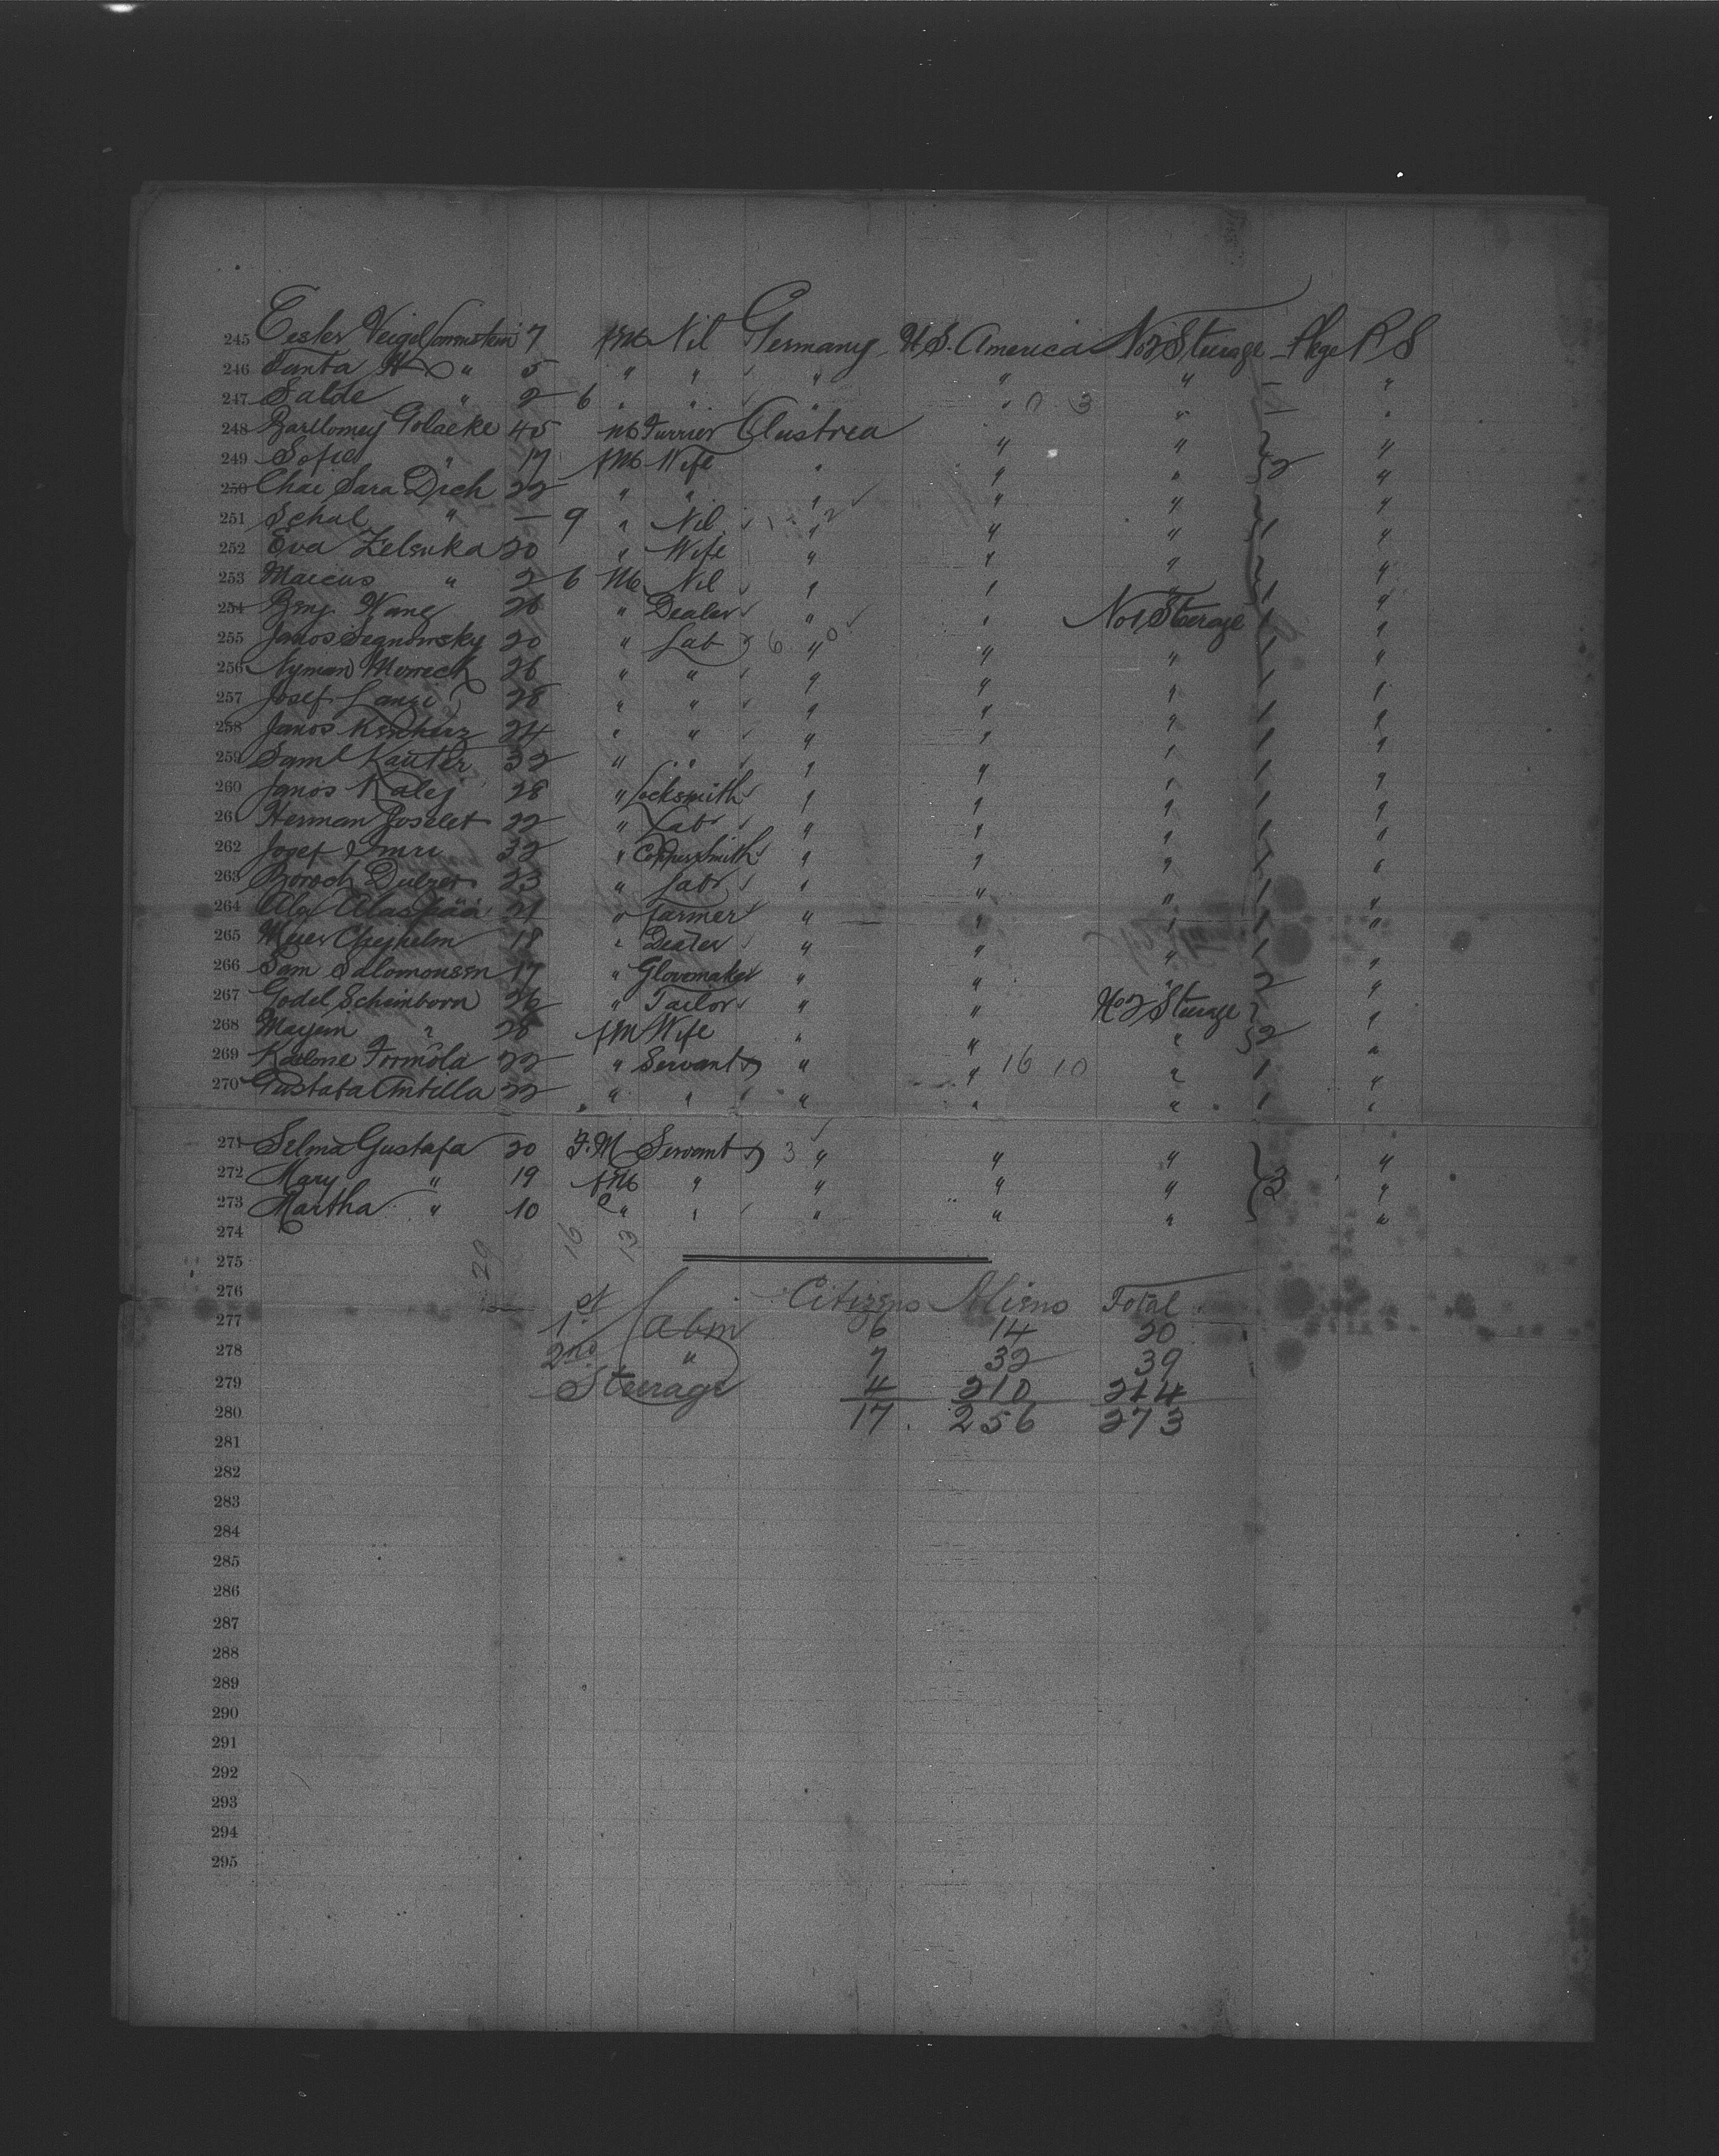 245 Tester Veigel Sonnstein 7 fm Nil Germany U.S. America No 2 Steerage Pkge P S
246 Tanta " 5 " " " " " — "
247 Salde " 2 6 " " " " " — "
248 Bartlomey Golaeke 45 M Furrier Austrea " " "
249 Sofie " 17 fm Wife " " " 2 "
250 Chai Sara Dich 22 " " " " " "
251 Schal " — 9 " Nil " " " 1 "
252 Eva Zelsnka 20 " Wife " " " "
253 Marcus " 2 6 M Nil " " " 1 "
254 Benj. Kane 26 " Dealer " " No 1 Steerage 1 "
255 Janos Segnowsky 20 " Lab " " " 1 "
256 Nyman 26 " " " " " 1 "
257 Josef Lanzi 28 " " " " " 1 "
258 Janos 24 " " " " " 1 "
259 Saml Kauter 32 " " " " " 1 "
260 Janos Kalej 28 " Locksmith " " " 1 "
261 Herman Joselet 22 " Lab " " " 1 "
262 Josef Imri 32 " Coppersmith " " " 1 "
263 Boroch Dulzer 23 " Labr " " " 1 "
264 Alex Alaspää 21 " farmer " " " 1 "
265 Meier 18 " Dealer " " " 1 "
266 Sam Salomonsen 17 " Glovemaker " " " 2 "
267 Godel Scheinborn 26 " Tailor " " No 2 Steerage "
268 Mayem " 28 fm Wife " " " 2 "
269 Kalone Formola 22 " Servant " " 16 10 " 1 "
270 Gustafa Antilla 22 " " " " " 1 "
271 Selma Gustafa 20 F.M Servant 3 " " " "
272 Mary " 19 fm " " " " 3 "
273 Martha " 10 " " " " " "
274
275
276 Citizens Aliens Total
277 1st Cabin 6 14 20
278 2nd " 7 32 39
279 Steerage 4 210 214
280 17 256 273
281
282
283
284
285
286
287
288
289
290
291
292
293
294
295